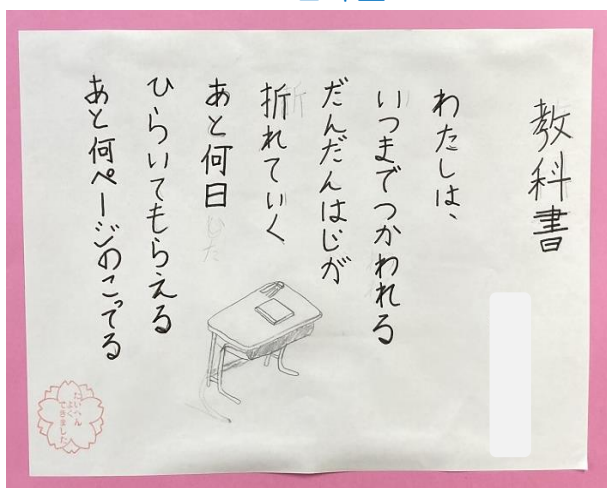 教科書
わたしは、
いつまでつかわれる
だんだんはじが
折れていく
あと何日
ひらいてもらえる
あと何ページのこってる
たいへん
よく
できました